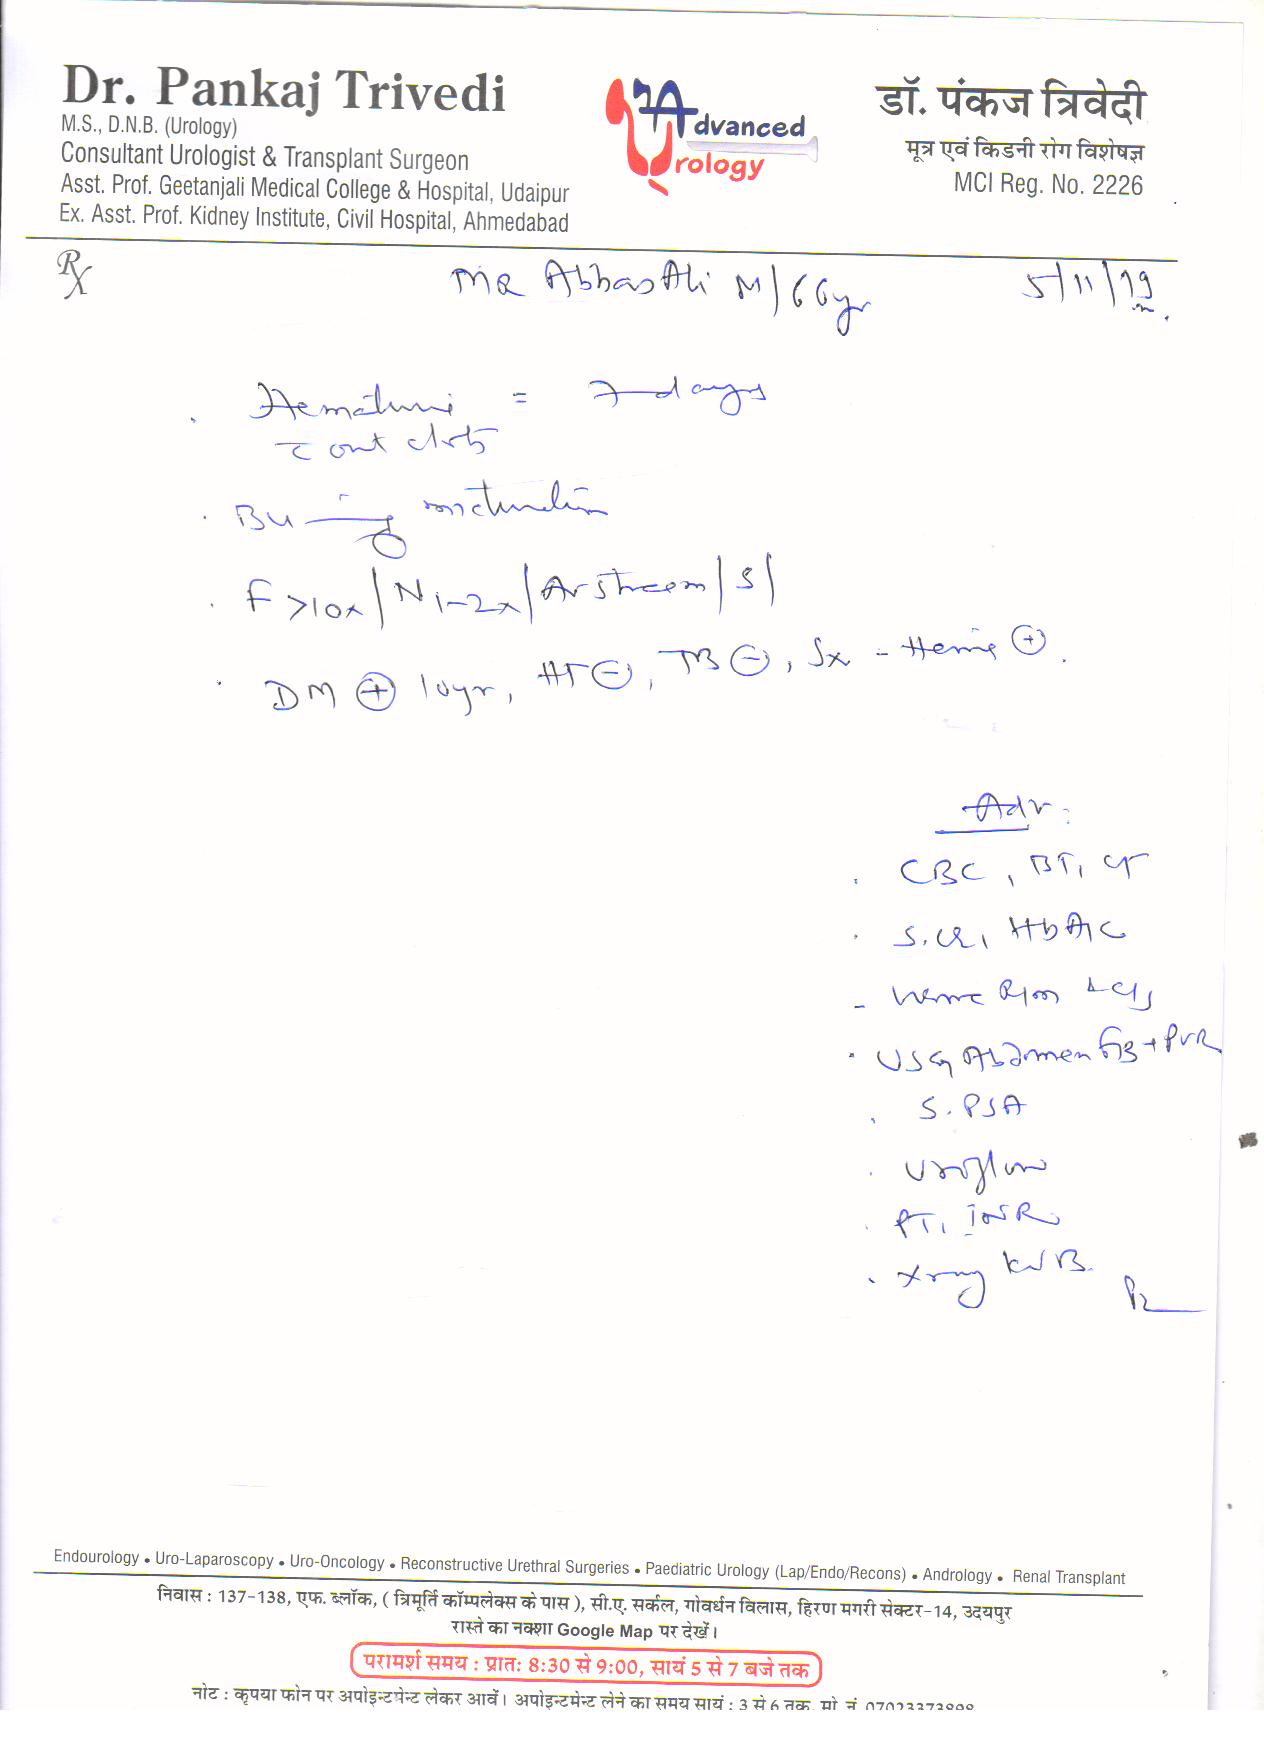 Dr. Pankaj Trivedi
M.S., D.N.B. (Urology)
Consultant Urologist & Transplant Surgeon
Asst. Prof. Geetanjali Medical College & Hospital, Udaipur
Ex. Asst. Prof. Kidney Institute, Civil Hospital, Ahmedabad
Advanced
Urology
डॉ. पंकज त्रिवेदी
मूत्र एवं किडनी रोग विशेषज्ञ
MCI Reg. No. 2226
Rx
Mr Abbas Ali M/66yr 5/11/19
Hematuri = 7 days
c out clots
Burning micturition
F >10x / N 1-2x / Av stream / S /
DM ⊕ 10yr, HT ⊖, TB ⊖, Sx - Hernie ⊕.
Adv:
CBC, BT, CT
S.Cr, HbA1C
Urine R/m + C/s
USG Abdomen + PVR
S. PSA
Uroflow
PT, INR
Xray KUB.
Endourology • Uro-Laparoscopy • Uro-Oncology • Reconstructive Urethral Surgeries • Paediatric Urology (Lap/Endo/Recons) • Andrology • Renal Transplant
निवास : 137-138, एफ. ब्लॉक, ( त्रिमूर्ति कॉम्पलेक्स के पास ), सी.ए. सर्कल, गोवर्धन विलास, हिरण मगरी सेक्टर-14, उदयपुर
रास्ते का नक्शा Google Map पर देखें।
परामर्श समय : प्रातः 8:30 से 9:00, सायं 5 से 7 बजे तक
नोट : कृपया फोन पर अपोइन्टमेन्ट लेकर आवें। अपोइन्टमेन्ट लेने का समय सायं : 3 से 6 तक, मो. नं. 07023373898